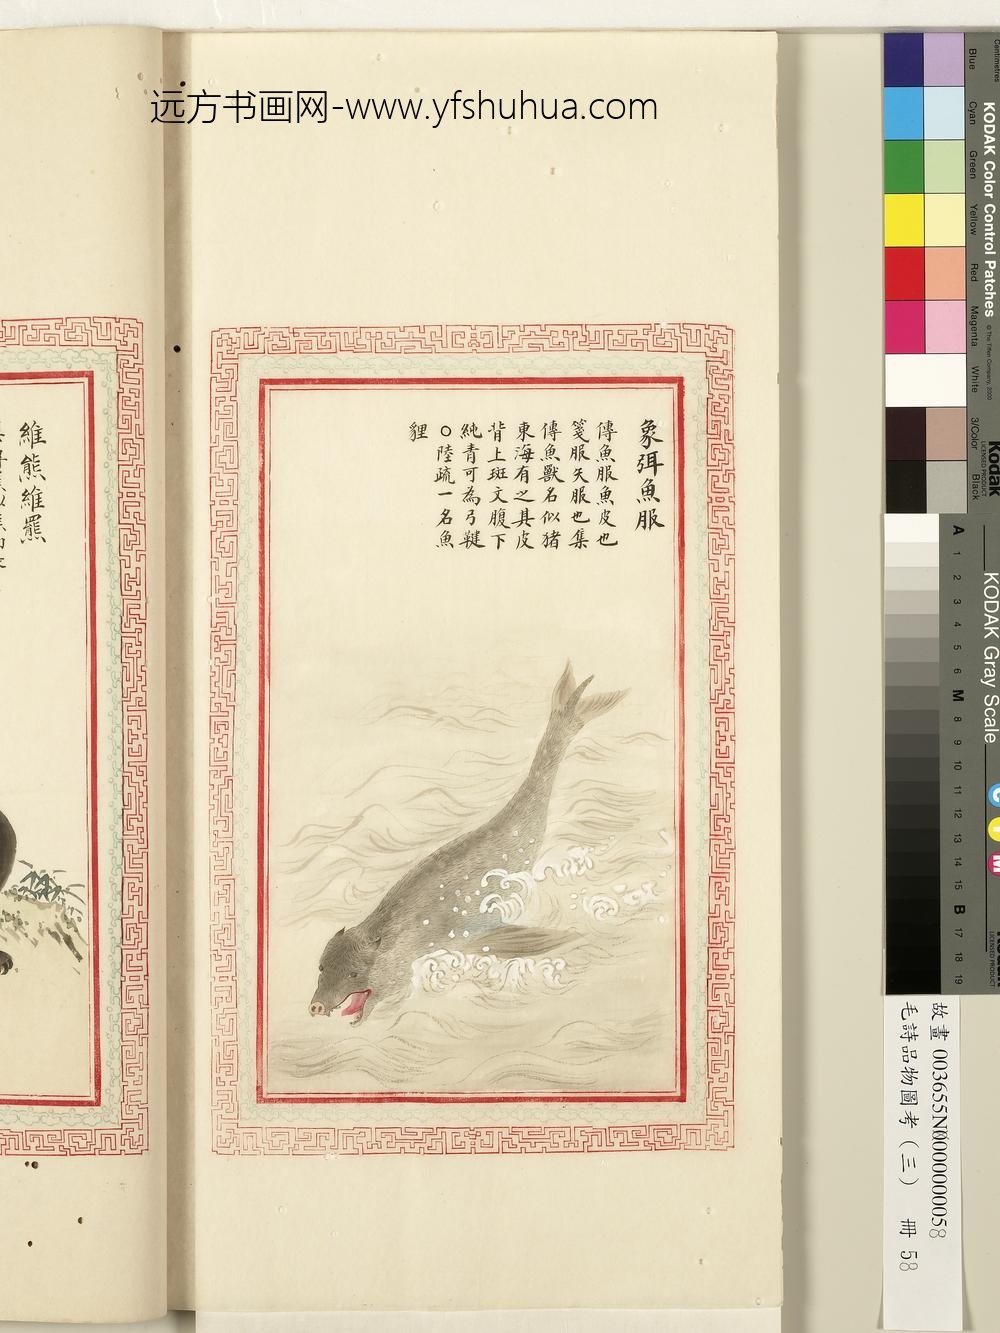 远方书画网-www.yfshuhua.com
象弭魚服
傳魚服魚皮也
箋服矢服也集
傳魚獸名似猪
東海有之其皮
背上斑文腹下
純青可為弓鞬
○陸疏一名魚
貍
維熊維羆
KODAK Color Control Patches
© The Tiffen Company, 2000
Kodak
LICENSED PRODUCT
Centimetres
Blue
Cyan
Green
Yellow
Red
Magenta
White
3/Color
Black
KODAK Gray Scale
A 1 2 3 4 5 6 M 8 9 10 11 12 13 14 15 B 17 18 19
C
Y
M
Kodak
LICENSED PRODUCT
故畫 003655N000000058
毛詩品物圖考(三) 冊 58